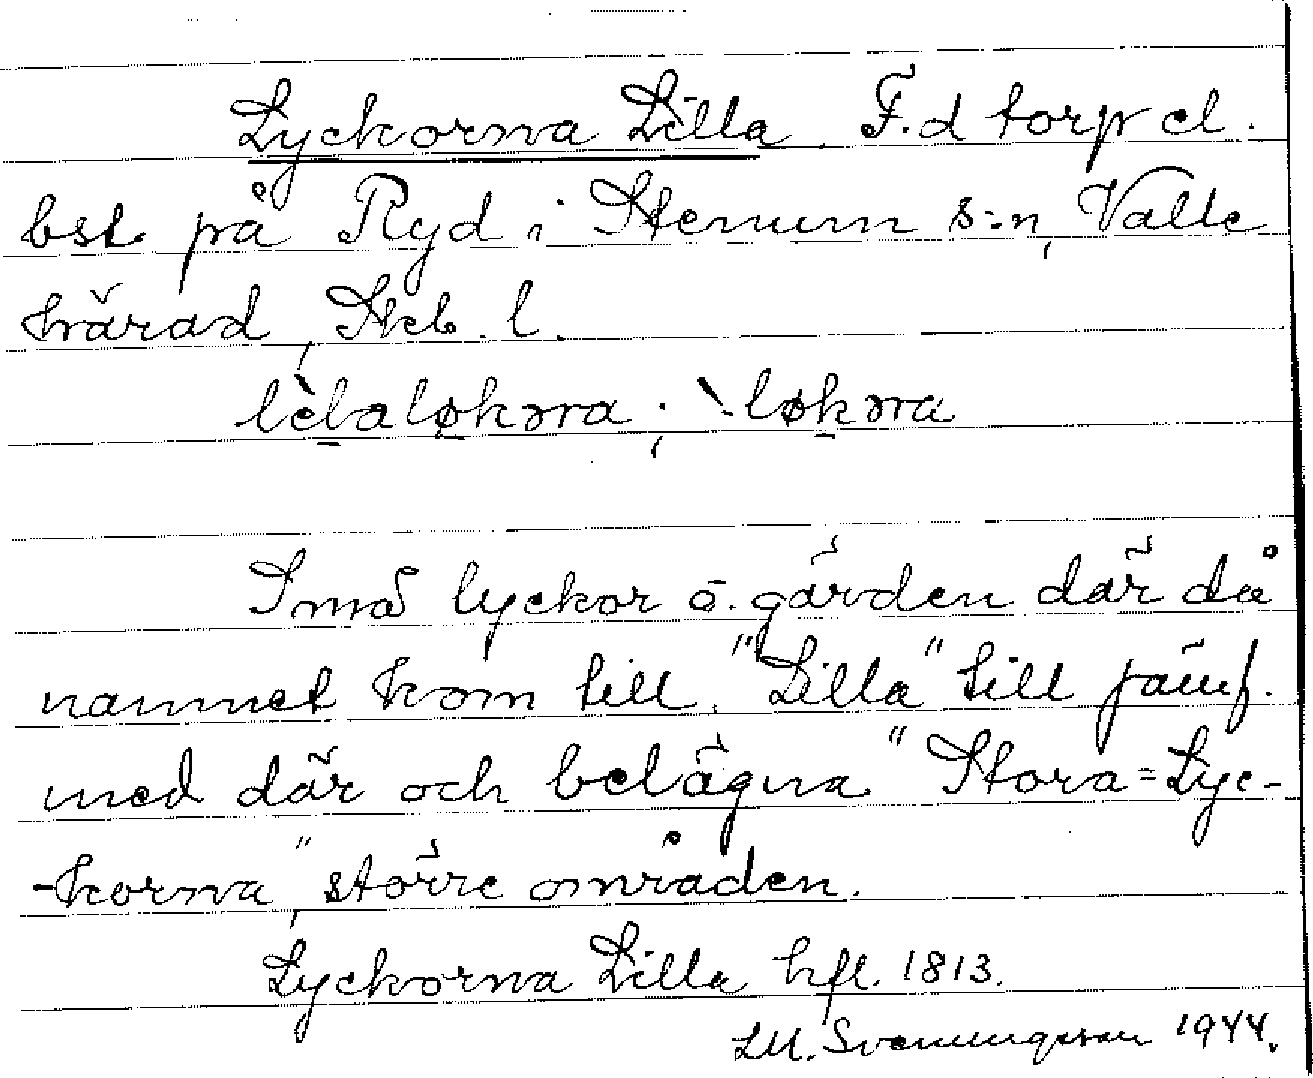 Lyckorna Lilla. F.d torp el.
bst. på Ryd i Stenum s:n, Valle
härad, Skb. l.
Små lyckor o. gärden där då
namnet kom till. "Lilla" till jämf.
med där och belägna "Stora=Lyc-
-korna", större områden.
Lyckorna Lilla hfl. 1813.
LM. Svenungsson 1944.